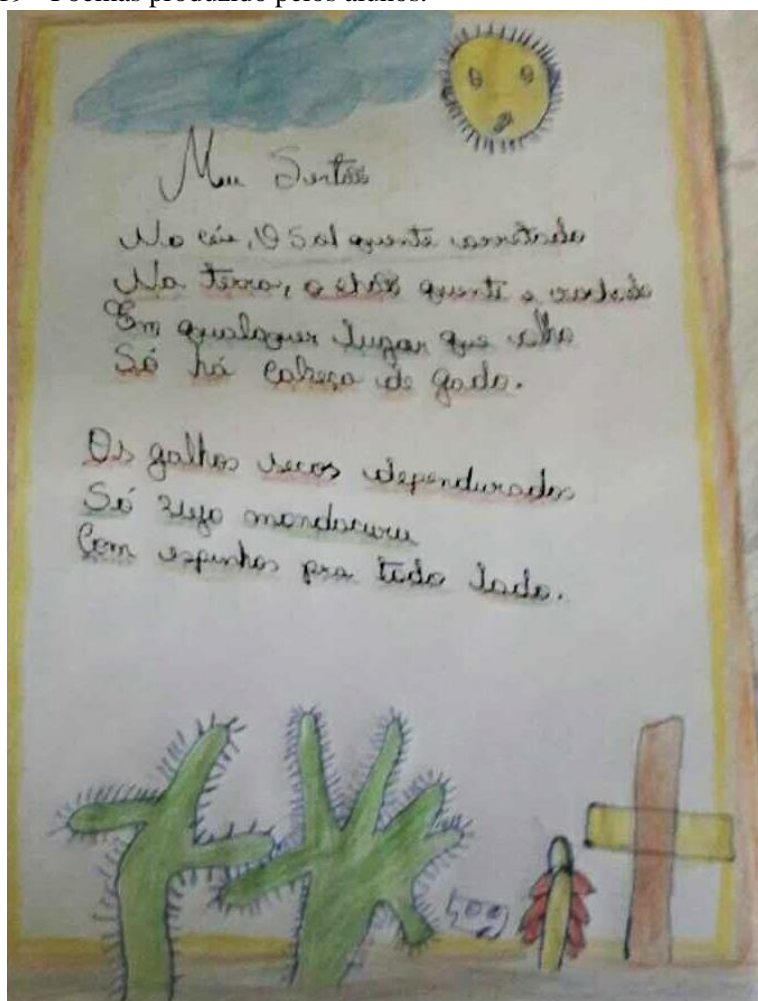 19 – Poemas produzido pelos alunos.
Meu Sertão
No céu, O Sol quente
Na terra, o chão quente e rachado
Em qualquer lugar que olho
Só há cabeça de gado.
Os galhos secos dependurados
Só vejo mandacuru
Com espinhos pra todo lado.